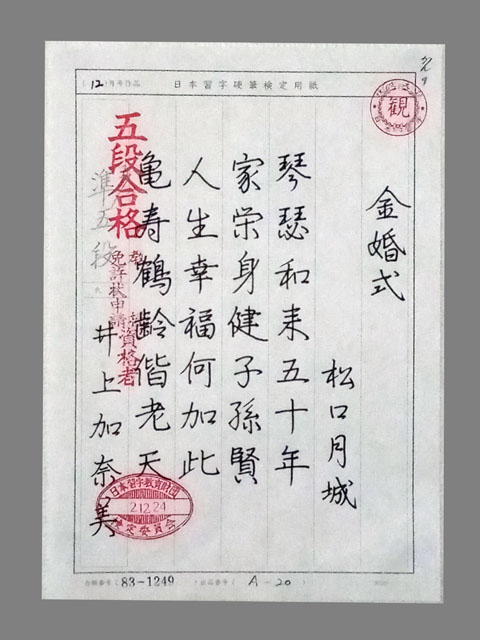 (12)月号作品
日本習字硬筆検定用紙
観
金婚式
松口月城
琴瑟和来五十年
家栄身健子孫賢
人生幸福何加此
亀寿鶴齢偕老天
五段合格
準五段
免許状申請資格者
井上加奈美
日本習字教育財団
2.12.24
検定委員会
83-1249
A-20